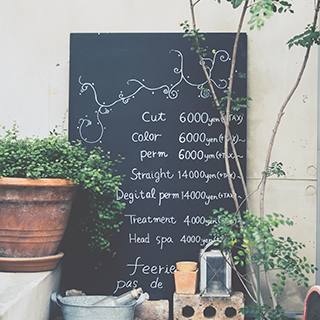 Cut 6000yen(+TAX)~
Color 6000yen(+TAX)~
perm 6000yen(+TAX)~
Straight 14000yen(+TAX)~
Degital perm 14000yen(+TAX)~
Treatment 4000yen
Head spa 4000yen
feerie
pas de